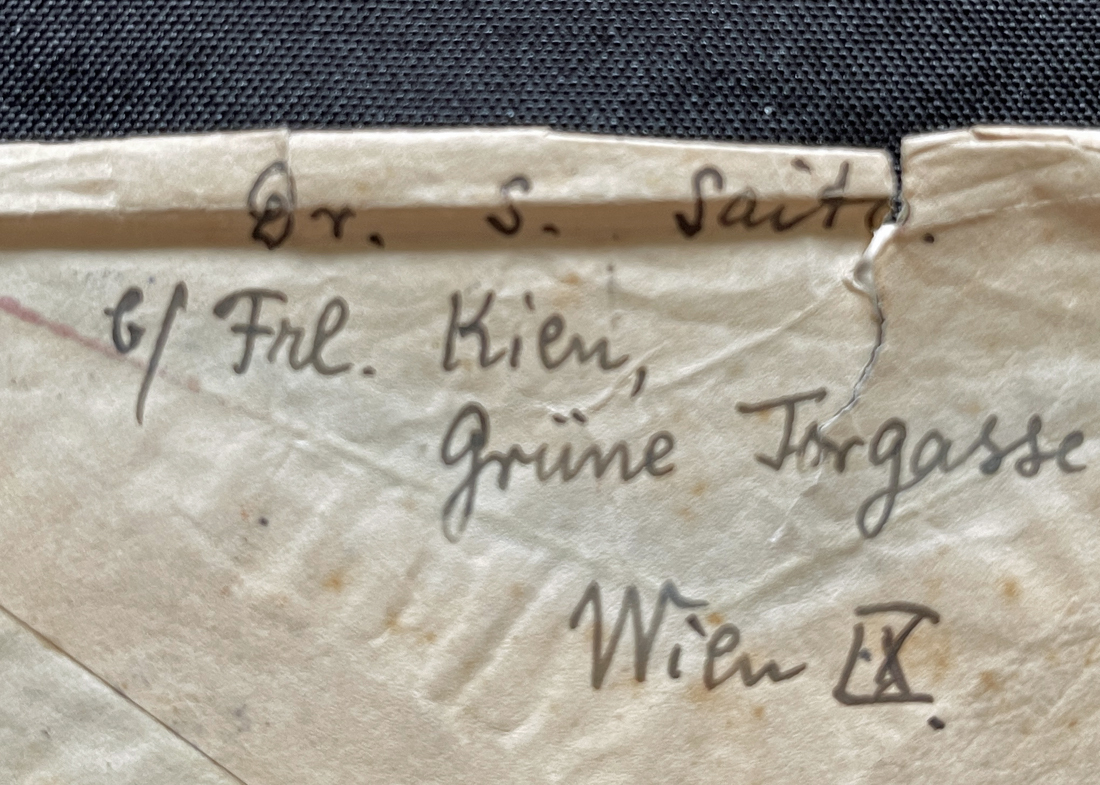 Dr. S. Saito.
b/ Frl. Kien,
Grüne Torgasse
Wien IX.